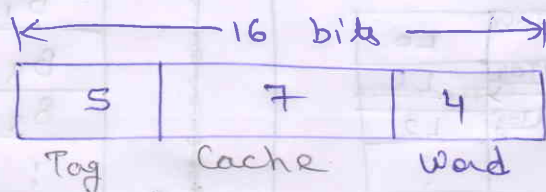 16 bits
5 7 4
Tag Cache Word